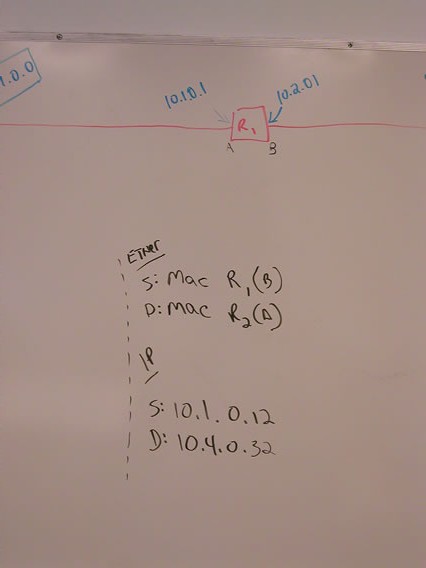 1.0.0
10.1.0.1
10.2.01
R1
A
B
Ether
S: Mac R1(B)
D: Mac R2(A)
IP
S: 10.1.0.12
D: 10.4.0.32